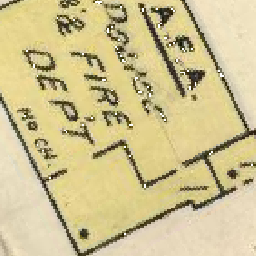 A.F.A.
POLICE
& FIRE
DEP'T
NO CH.